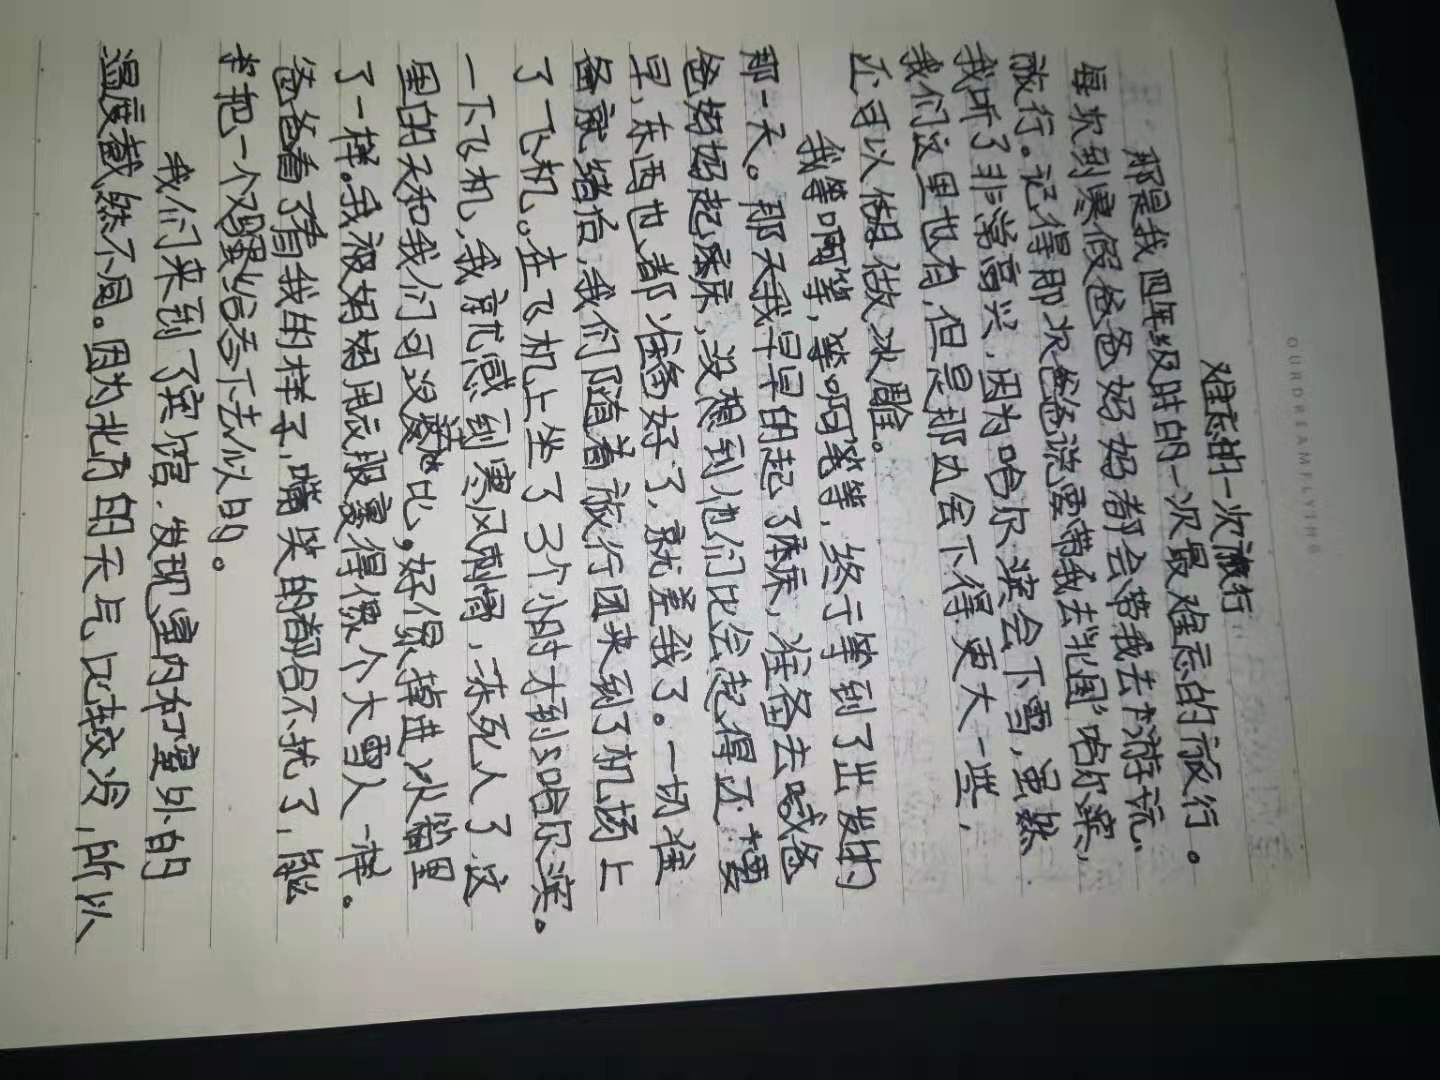 OURDREAMFLYING
难忘的一次旅行
那是我四年级时的一次最难忘的旅行。
每次到寒假爸爸妈妈都会带我去游玩、
旅行。记得那次爸爸说要带我去北国"哈尔滨,
我听了非常高兴,因为哈尔滨会下雪,虽然
我们这里也有,但是那边会下得更大一些,
还可以做冰雕。
我等啊等,等啊等等,终于等到了出发的
那一天。那天我早早的起了床,准备去喊爸
爸妈妈起床,没想到他们比会起得还要
早,东西也都准备好了,就差我了。一切准
备就绪后,我们随着旅行团来到了机场上
了飞机。在飞机上坐了3个小时才到哈尔滨。
一下飞机,我就感到寒风刺骨,冻死人了这
里的天和我们可没比,好像掉进冰箱里
了一样。我被妈妈用衣服裹得像个大雪人一样。
爸爸看了看我的样子,嘴笑的都合不拢了,能
把一个给吞下去似的。
我们来到了宾馆,发现室内和室外的
温度截然不同。因为北方的天气比较冷,所以